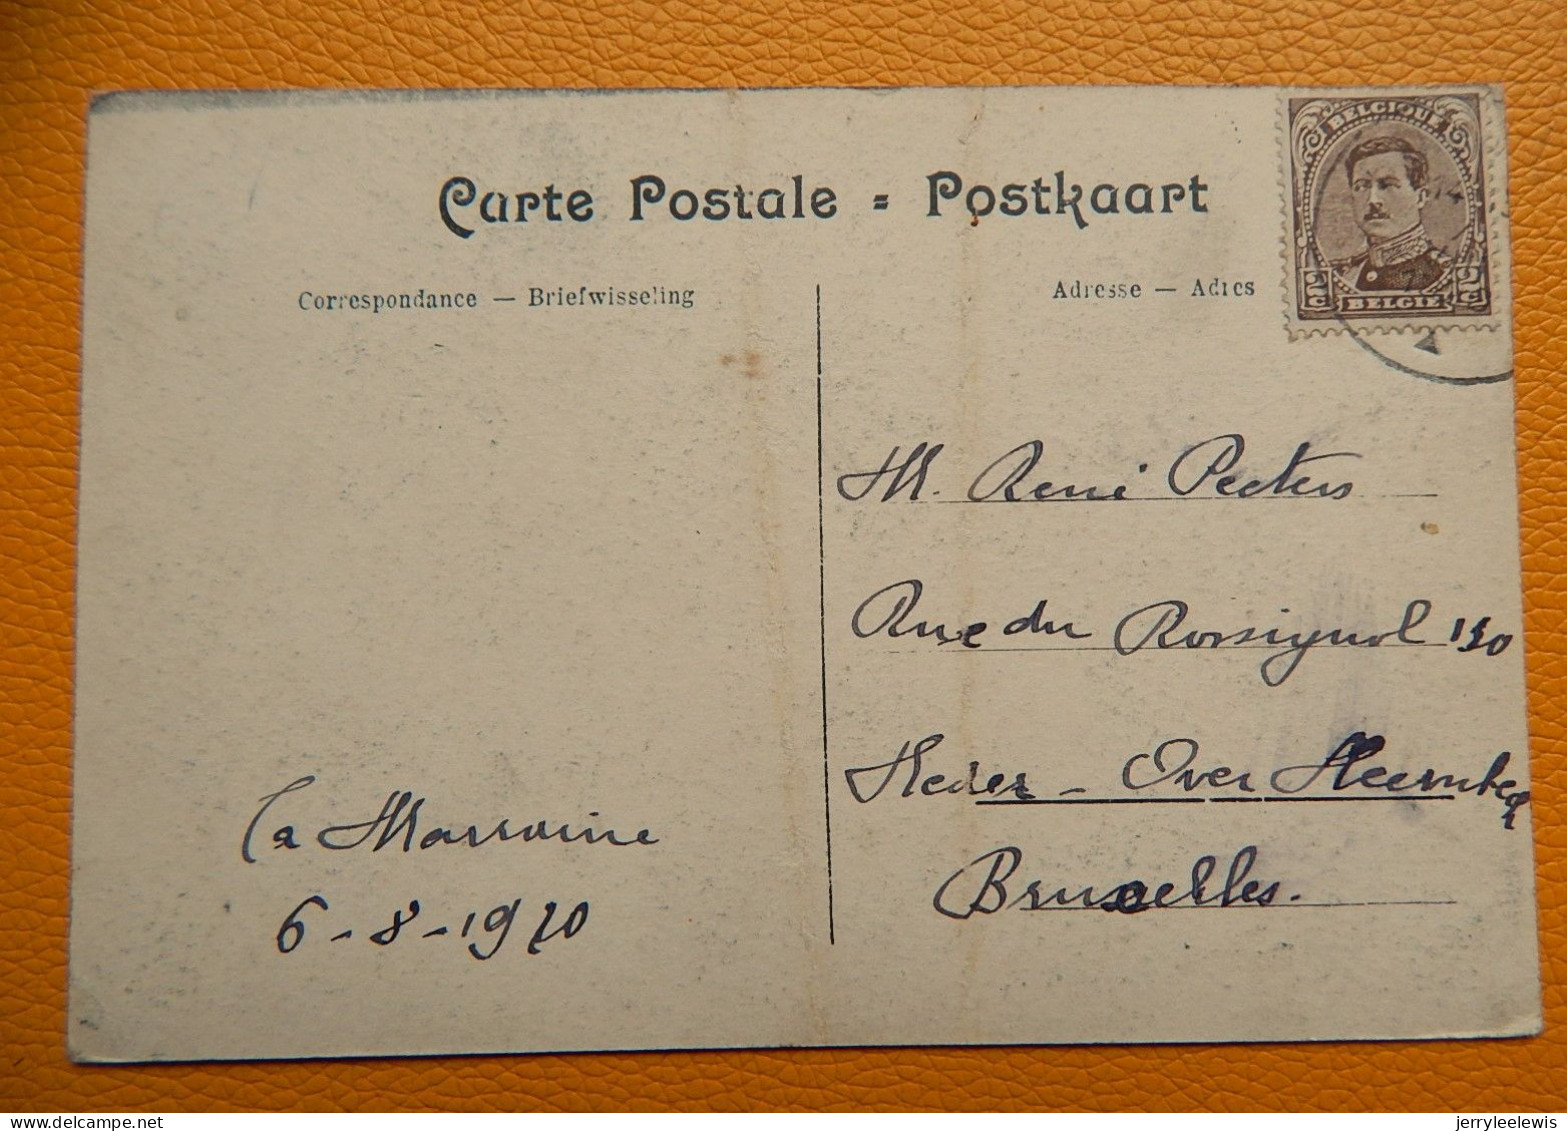 Carte Postale = Postkaart
Correspondance — Briefwisseling
Adresse — Adres
BELGIQUE
2c 2c
BELGIË
M. René Peeters
Rue du Rossignol 130
Neder - Over Heembeek
Bruxelles.
La Marraine
6-8-1920
www.delcampe.net
jerryleelewis